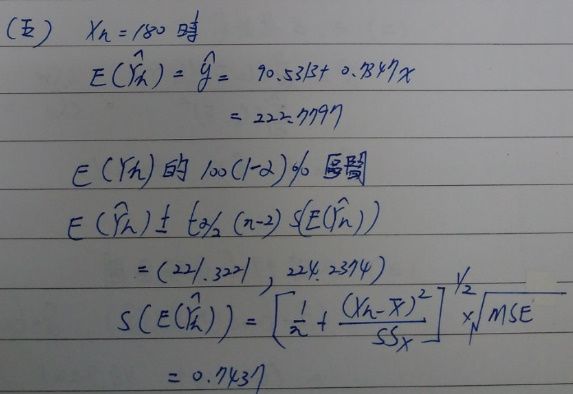 (五) Xh = 180 時
E(Ŷh) = ŷ = 90.5313 + 0.7347x
= 222.7797
E(Yh) 的 100(1-α)% 區間
E(Ŷh) ± tα/2 (n-2) S(E(Ŷh))
= (221.3221, 224.2374)
S(E(Ŷh)) = [1/n + (Xh-X̄)²/SSx]^1/2 × √MSE
= 0.7437